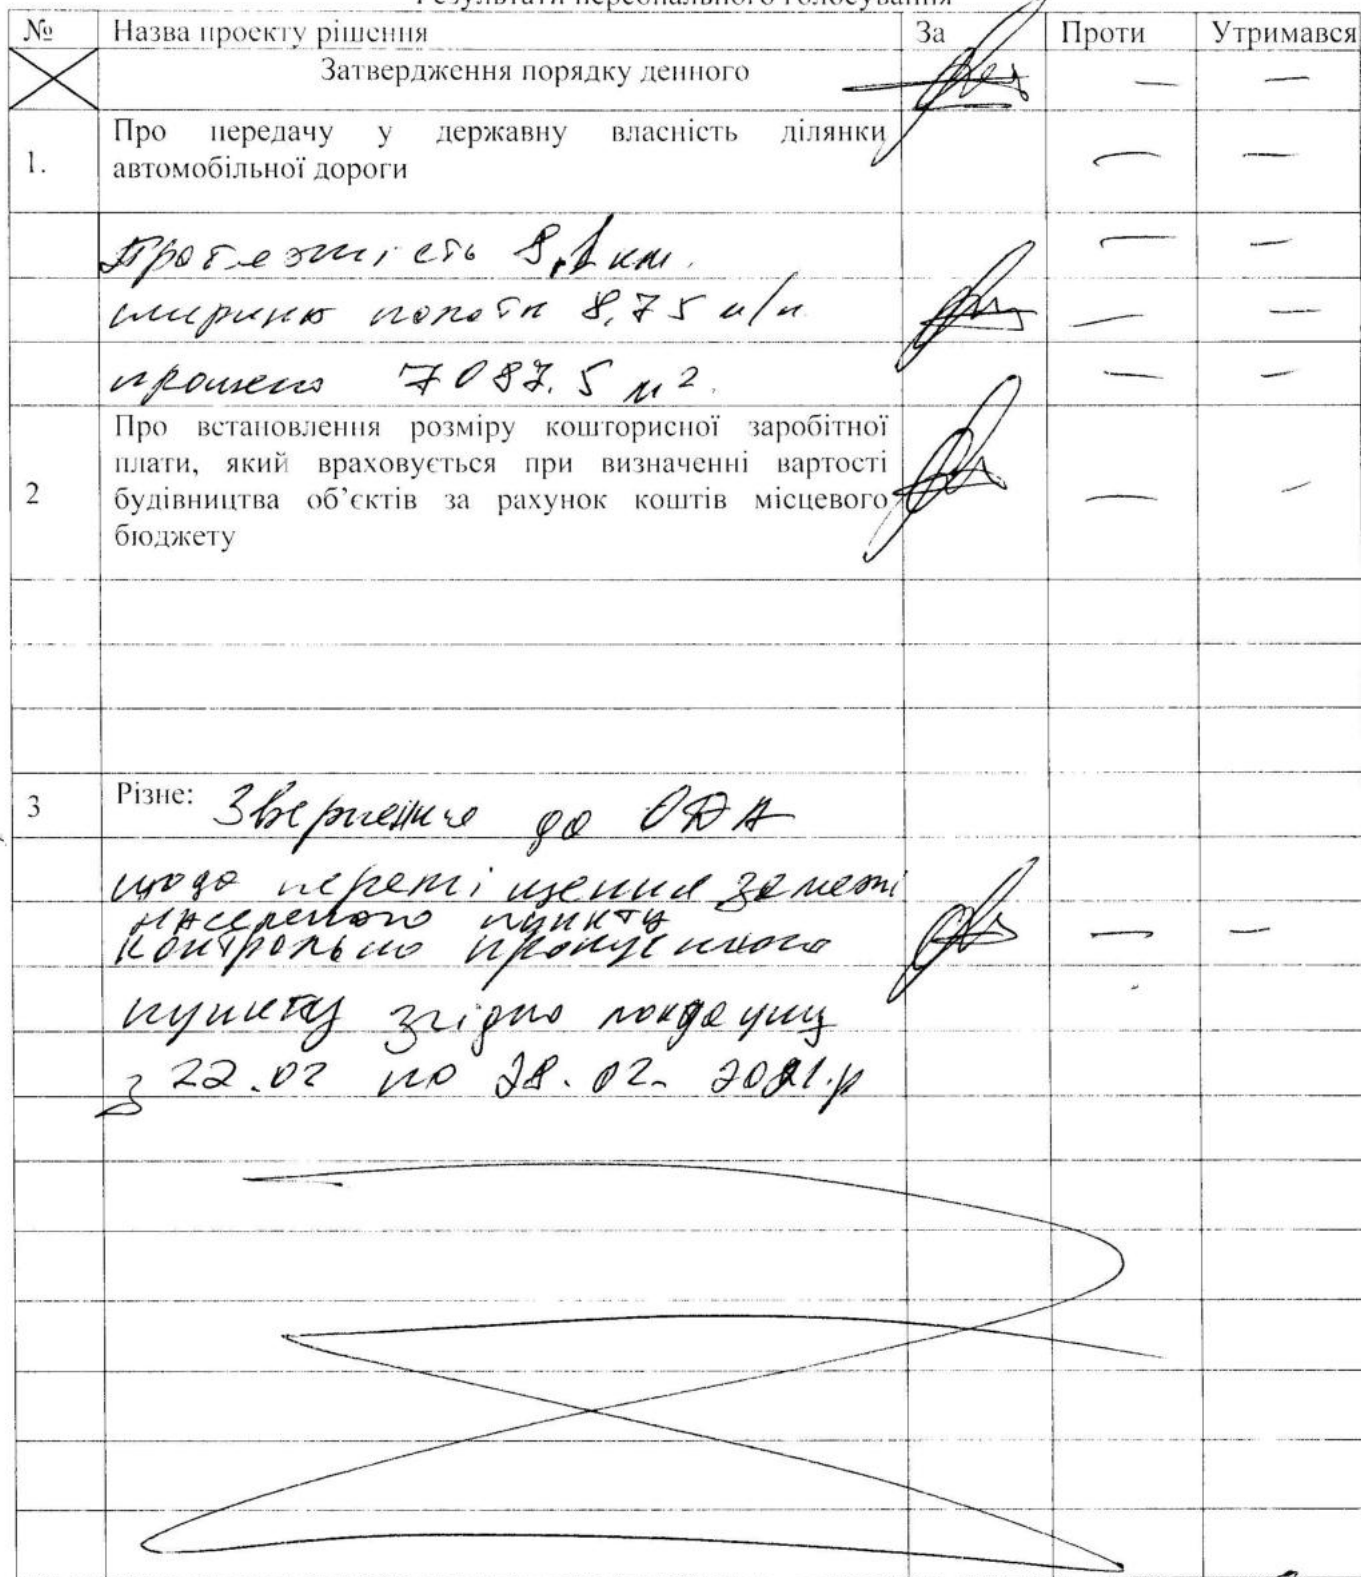 Результати персонального голосування
№ Назва проекту рішення За Проти Утримався
Затвердження порядку денного — —
1. Про передачу у державну власність ділянки
автомобільної дороги — —
Протяжність 8,1 км. — —
ширина полотн 8,75 м/п — —
площею 7087.5 м². — —
Про встановлення розміру кошторисної заробітної
плати, який враховується при визначенні вартості
2 будівництва об’єктів за рахунок коштів місцевого — —
бюджету
3 Різне: Звернення до ОДА
щодо переміщення за межі
населеного пункту
контрольно пропускного — —
пункту згідно
з 22.02 по 28.02. 2021.р